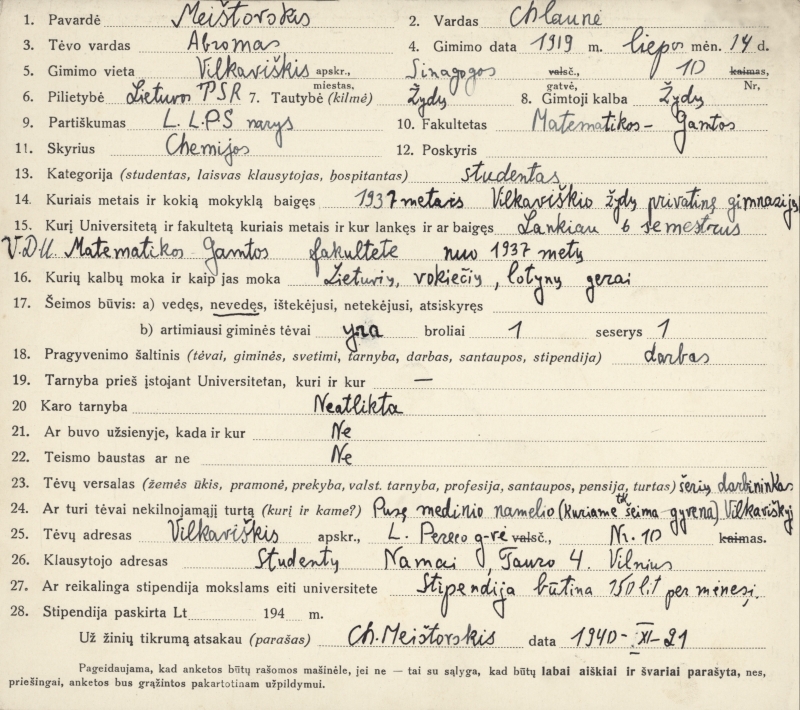 1. Pavardė Meištovskis 2. Vardas Chlaunė
3. Tėvo vardas Abromas 4. Gimimo data 1919 m. liepos mėn. 14 d.
5. Gimimo vieta Vilkaviškis apskr., Sinagogos valsč., 10 kaimas,
miestas, gatvė, Nr,
6. Pilietybė Lietuvos TSR 7. Tautybė (kilmė) Žydų 8. Gimtoji kalba Žydų
9. Partiškumas L.L.P.S narys 10. Fakultetas Matematikos-Gamtos
11. Skyrius Chemijos 12. Poskyris
13. Kategorija (studentas, laisvas klausytojas, hospitantas) studentas
14. Kuriais metais ir kokią mokyklą baigęs 1937 metais Vilkaviškio žydų privatinę gimnaziją
15. Kurį Universitetą ir fakultetą kuriais metais ir kur lankęs ir ar baigęs Lankiau 6 semestrus
V.D.U. Matematikos-Gamtos fakultete nuo 1937 metų
16. Kurių kalbų moka ir kaip jas moka Lietuvių, vokiečių, lotynų gerai
17. Šeimos būvis: a) vedęs, nevedęs, ištekėjusi, netekėjusi, atsiskyręs
b) artimiausi giminės tėvai yra broliai 1 seserys 1
18. Pragyvenimo šaltinis (tėvai, giminės, svetimi, tarnyba, darbas, santaupos, stipendija) darbas
19. Tarnyba prieš įstojant Universitetan, kuri ir kur —
20 Karo tarnyba Neatlikta
21. Ar buvo užsienyje, kada ir kur Ne
22. Teismo baustas ar ne Ne
23. Tėvų versalas (žemės ūkis, pramonė, prekyba, valst. tarnyba, profesija, santaupos, pensija, turtas) šerių darbininkas
24. Ar turi tėvai nekilnojamąjį turtą (kurį ir kame?) Pusę medinio namelio (kuriame tik šeima gyvena) Vilkaviškyj
25. Tėvų adresas Vilkaviškis apskr., L. Pereco g-vė valsč., Nr. 10 kaimas.
26. Klausytojo adresas Studentų Namai, Tauro 4. Vilnius
27. Ar reikalinga stipendija mokslams eiti universitete Stipendija būtina 150 lit per mėnesį.
28. Stipendija paskirta Lt 194 m.
Už žinių tikrumą atsakau (parašas) Ch. Meištovskis data 1940-XI-21
Pageidaujama, kad anketos būtų rašomos mašinėle, jei ne — tai su sąlyga, kad būtų labai aiškiai ir švariai parašyta, nes,
priešingai, anketos bus grąžintos pakartotinam užpildymui.